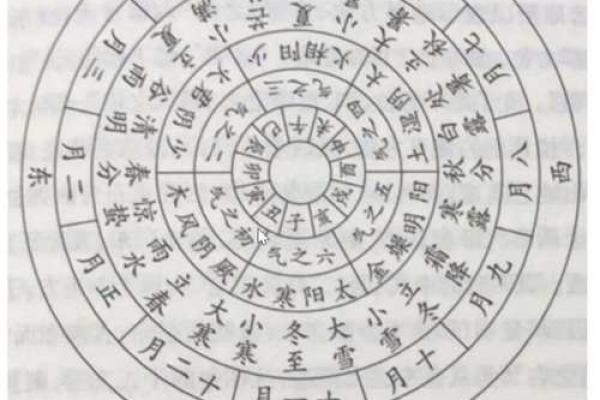 子 丑 寅 卯 辰 巳 午 未 申 酉 戌 亥
初之气 二之气 三之气 四之气 五之气 六之气
厥阴风木 少阴君火 少阳相火 太阴湿土 阳明燥金 太阳寒水
大寒 立春 雨水 惊蛰 春分 清明 谷雨 立夏 小满 芒 夏 小 大暑 立秋 处暑 白露 秋分 寒露 霜降 立冬 小雪 大雪 冬至 小寒
正月 二月 三月 七月 八月 九月 十月 十一月 十二月
东
西